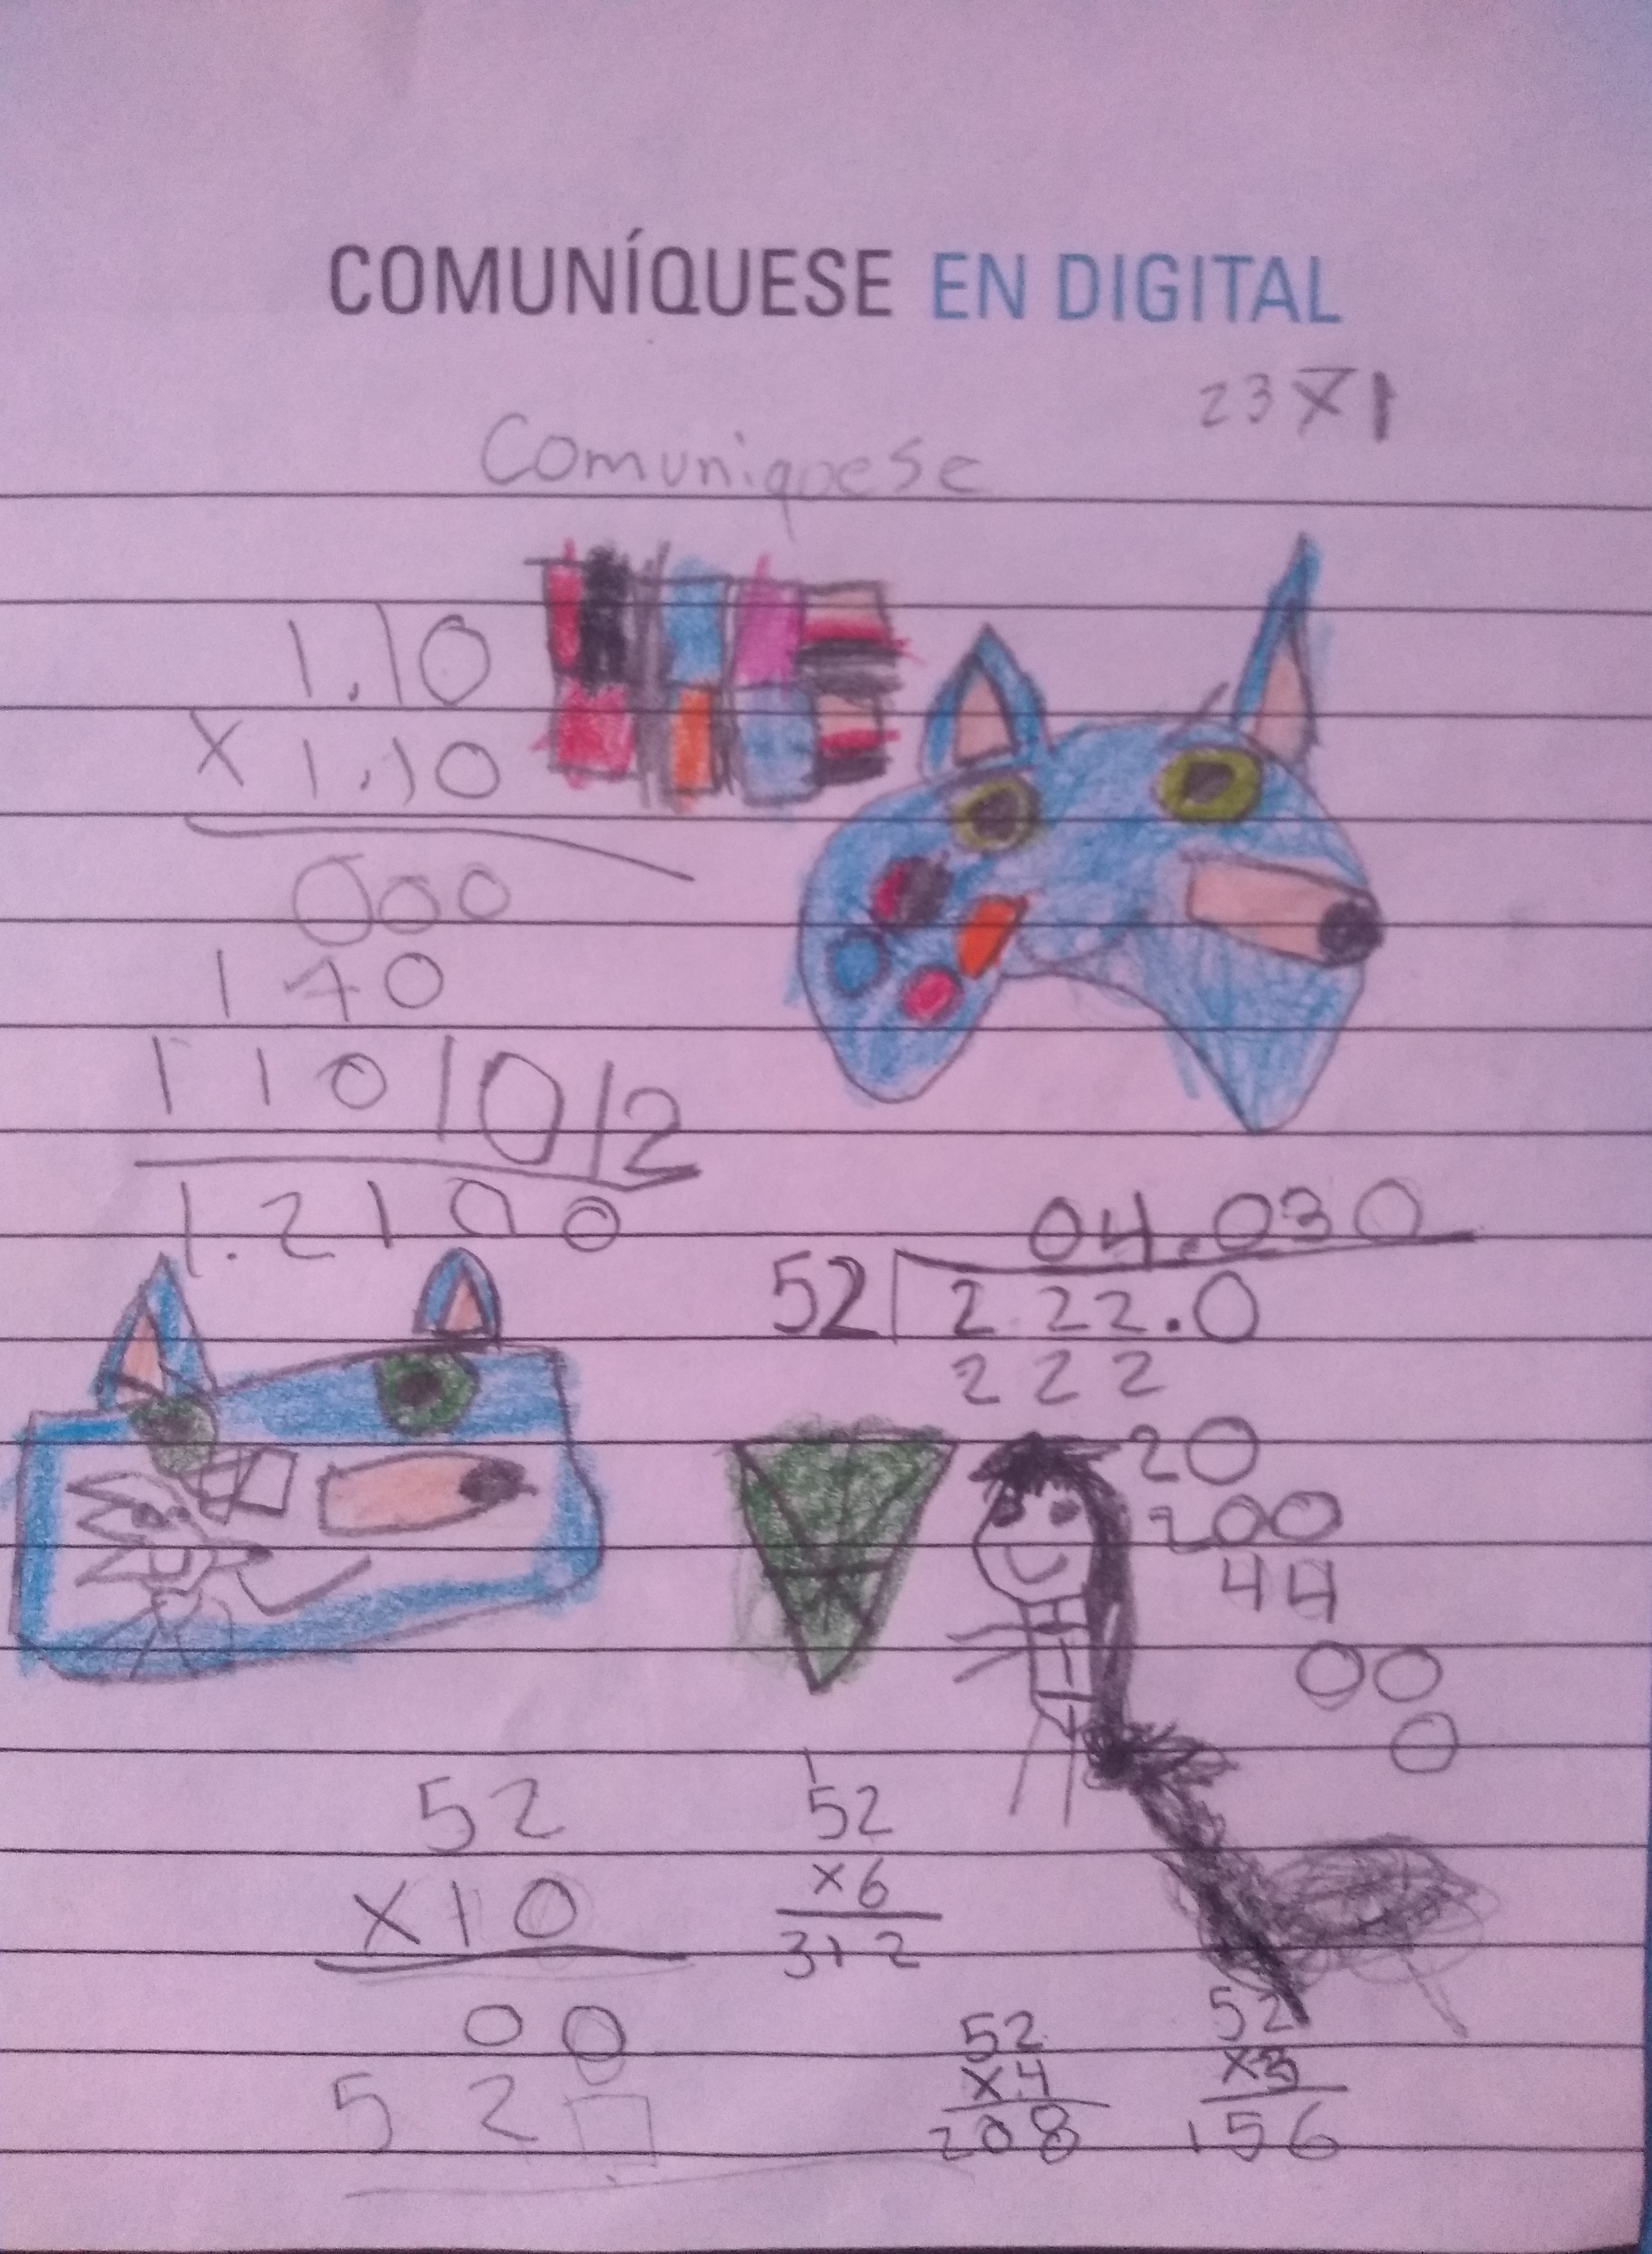 COMUNÍQUESE EN DIGITAL
23 X 1
Comuniquese
1.10
X 1.10
000
1 10
1 1 0 10 12
1.2100
04.030
52 222.0
222
20
200
44
00
0
52
X10
00
52
52
x6
312
52
x4
208
52
x3
156